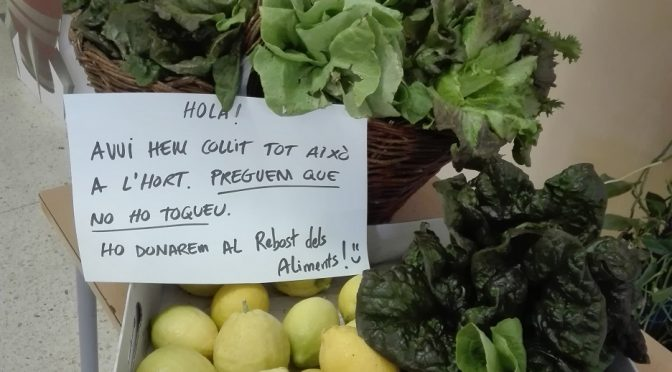 HOLA!
AVUI HEM COLLIT TOT AIXÒ
A L'HORT. PREGUEM QUE
NO HO TOQUEU.
HO DONAREM AL Rebost dels
Aliments!